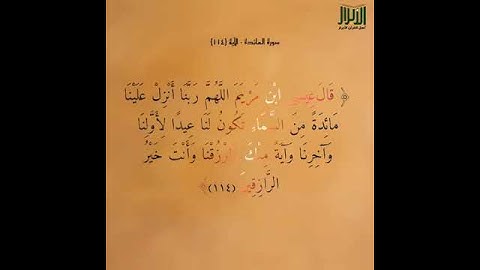 الأبرار
سورة المائدة - الآية {١١٤}
﴿ قَالَ عِيسَى ابْنُ مَرْيَمَ اللَّهُمَّ رَبَّنَا أَنْزِلْ عَلَيْنَا
مَائِدَةً مِنَ السَّمَاءِ تَكُونُ لَنَا عِيدًا لِأَوَّلِنَا
وَآخِرِنَا وَآيَةً مِنْكَ وَارْزُقْنَا وَأَنْتَ خَيْرُ
الرَّازِقِينَ (١١٤) ﴾